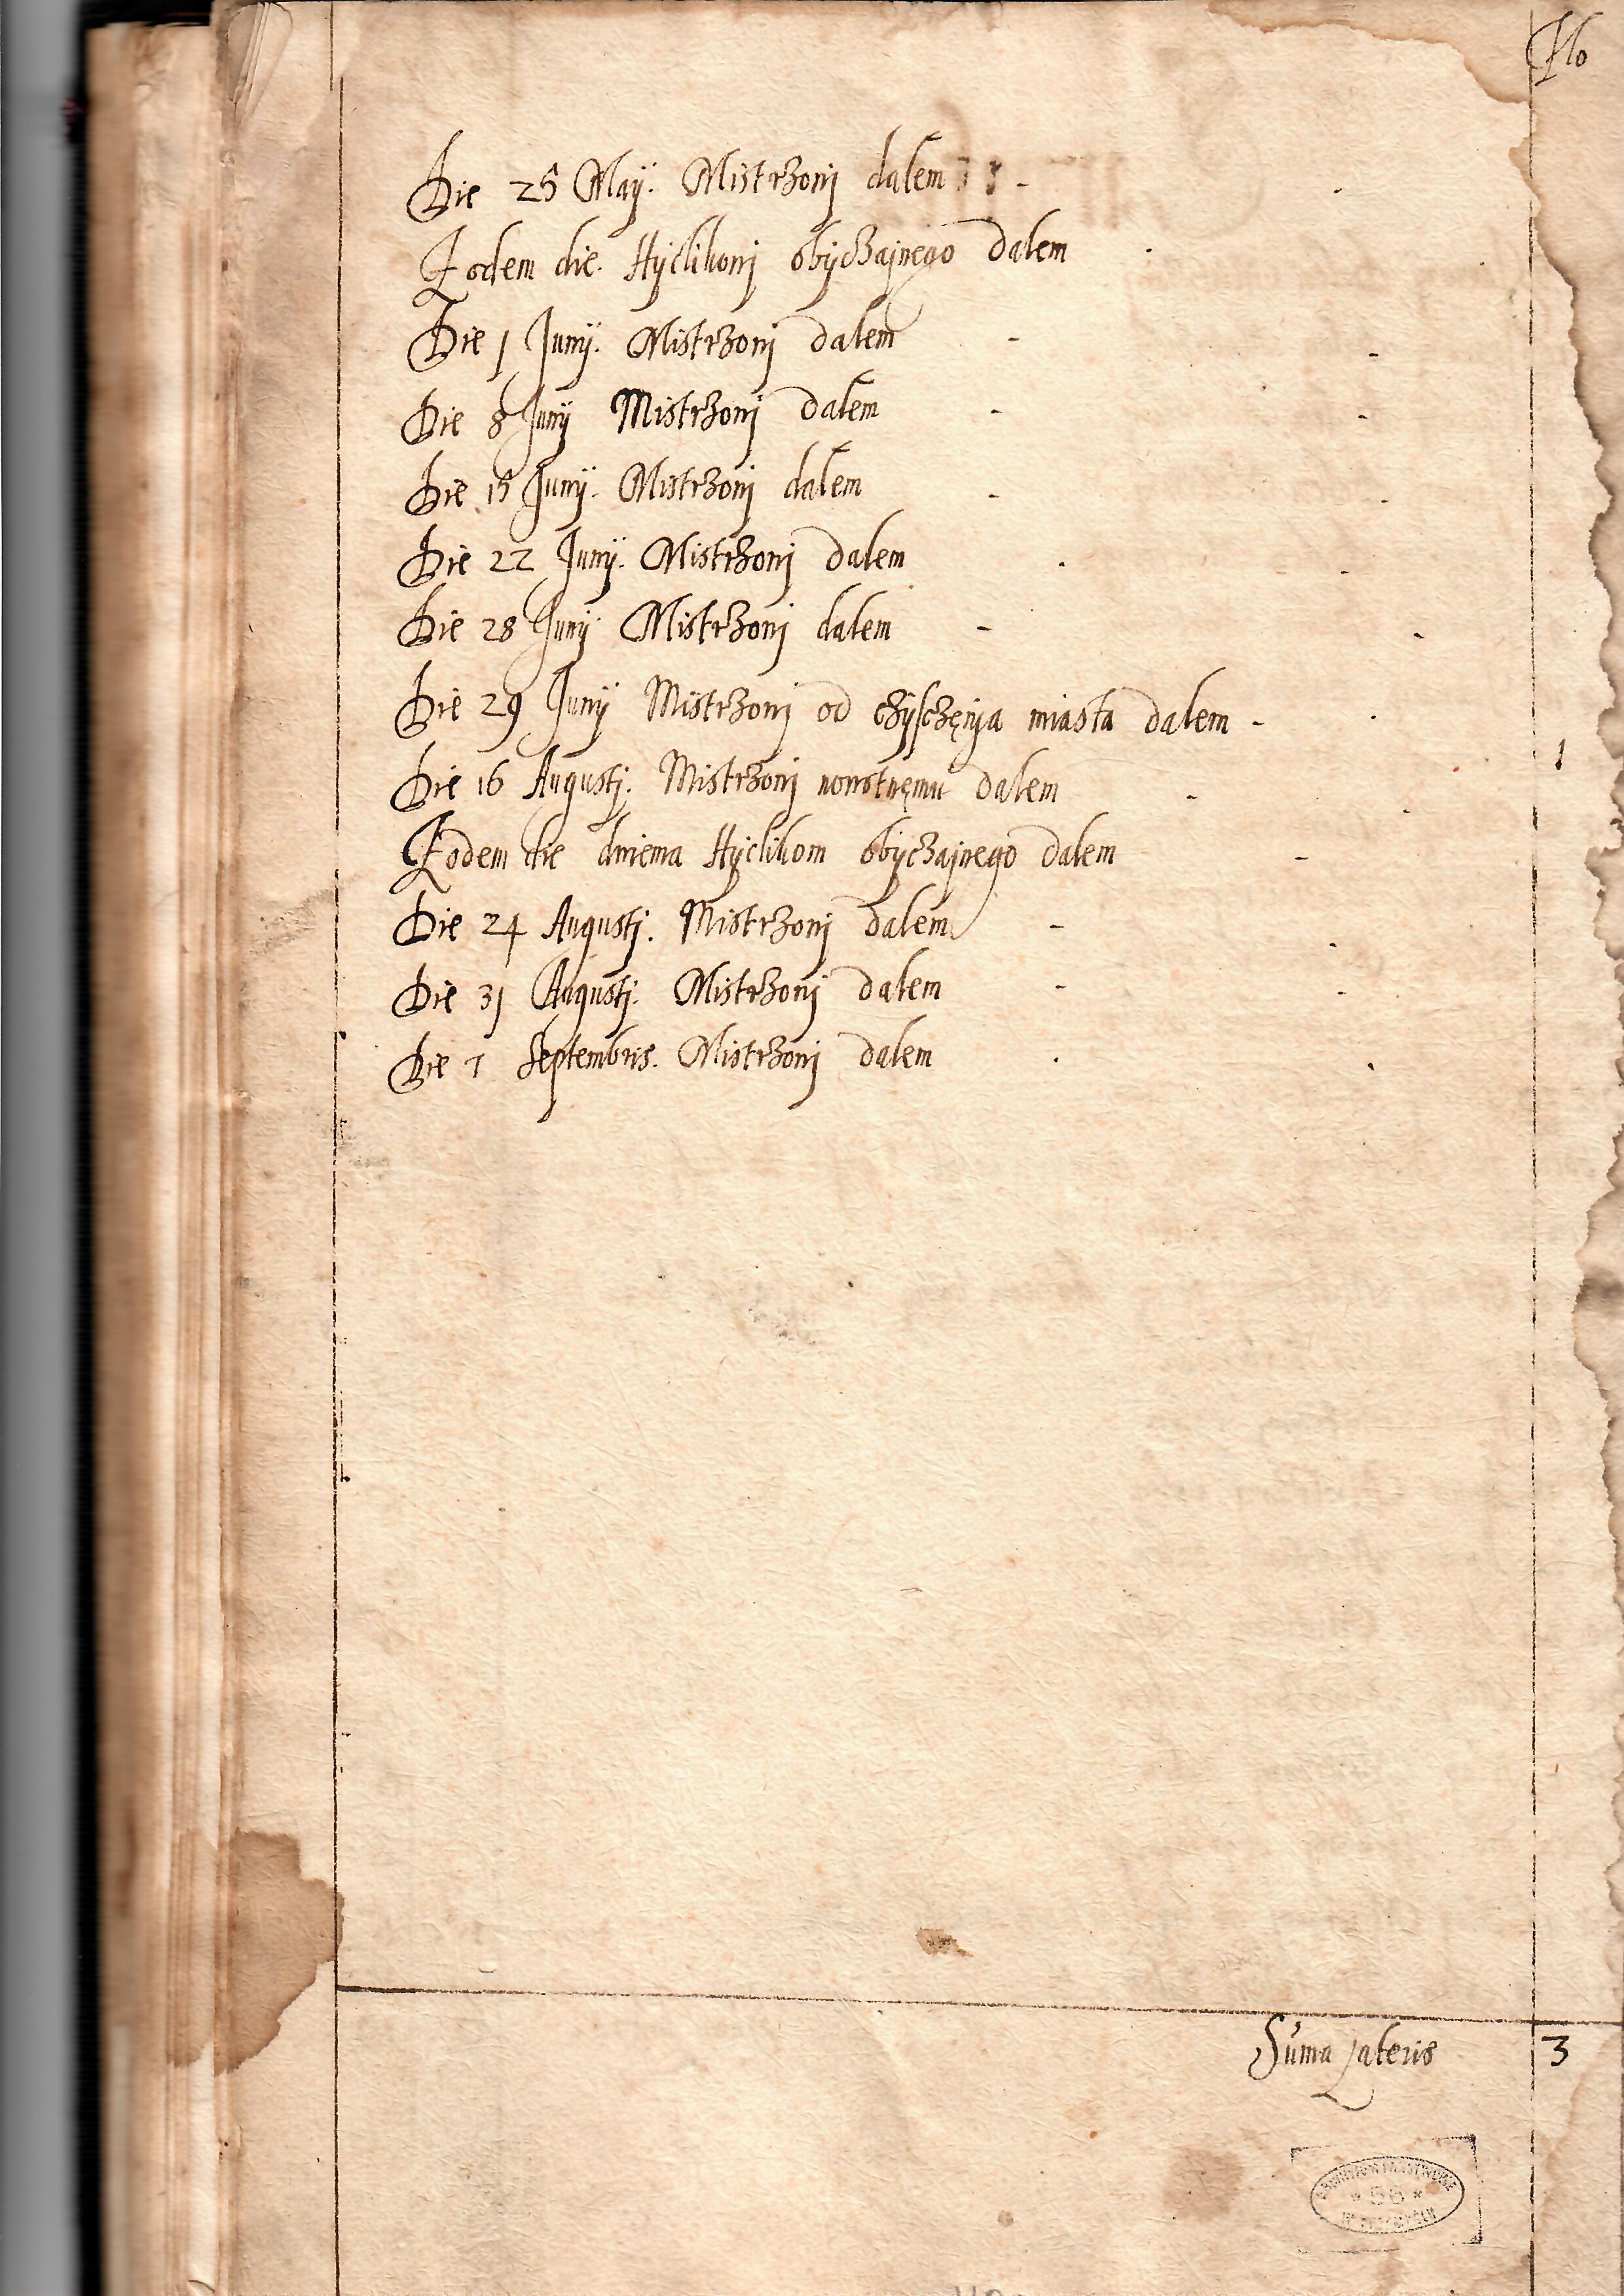 Flo
Die 25 Maÿ. Mistrzowj dalem -
Eodem die. Hÿclikowj obÿczajnego dalem
Die 1 Junÿ. Mistrzowj dalem -
Die 8 Junÿ Mistrzowj dalem -
Die 15 Junÿ. Mistrzowj dalem -
Die 22 Junÿ. Mistrzowj dalem
Die 28 Junÿ Mistrzowj dalem -
Die 29 Junÿ Mistrzowj od czÿsczęnja miasta dalem - 1
Die 16 Augustj. Mistrzowj dalem -
Eodem die dwiema Hÿclikom obÿczajnego dalem -
Die 24 Augustj. Mistrzowj dalem -
Die 31 Augustj. Mistrzowj dalem -
Die 7 Septembris. Mistrzowj dalem
Suma Lateris 3
ARCHIWUM PAŃSTWOWE
* 56 *
W PRZEMYŚLU